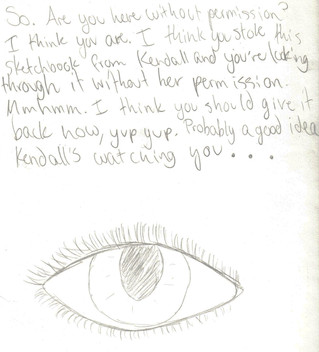 So. Are you here without permission?
I think you are. I think you stole this
sketchbook from Kendall and you're looking
through it without her permission.
Mmhmm. I think you should give it
back now, yup yup. Probably a good idea
Kendall's watching you....